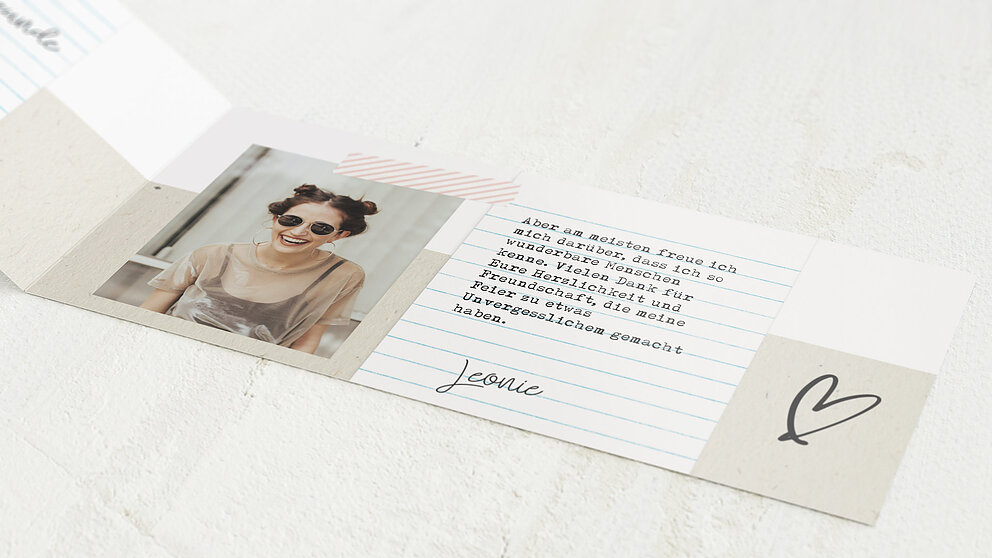 Aber am meisten freue ich
mich darüber, dass ich so
wunderbare Menschen
kenne. Vielen Dank für
Eure Herzlichkeit und
Freundschaft, die meine
Feier zu etwas
Unvergesslichem gemacht
haben.
Leonie